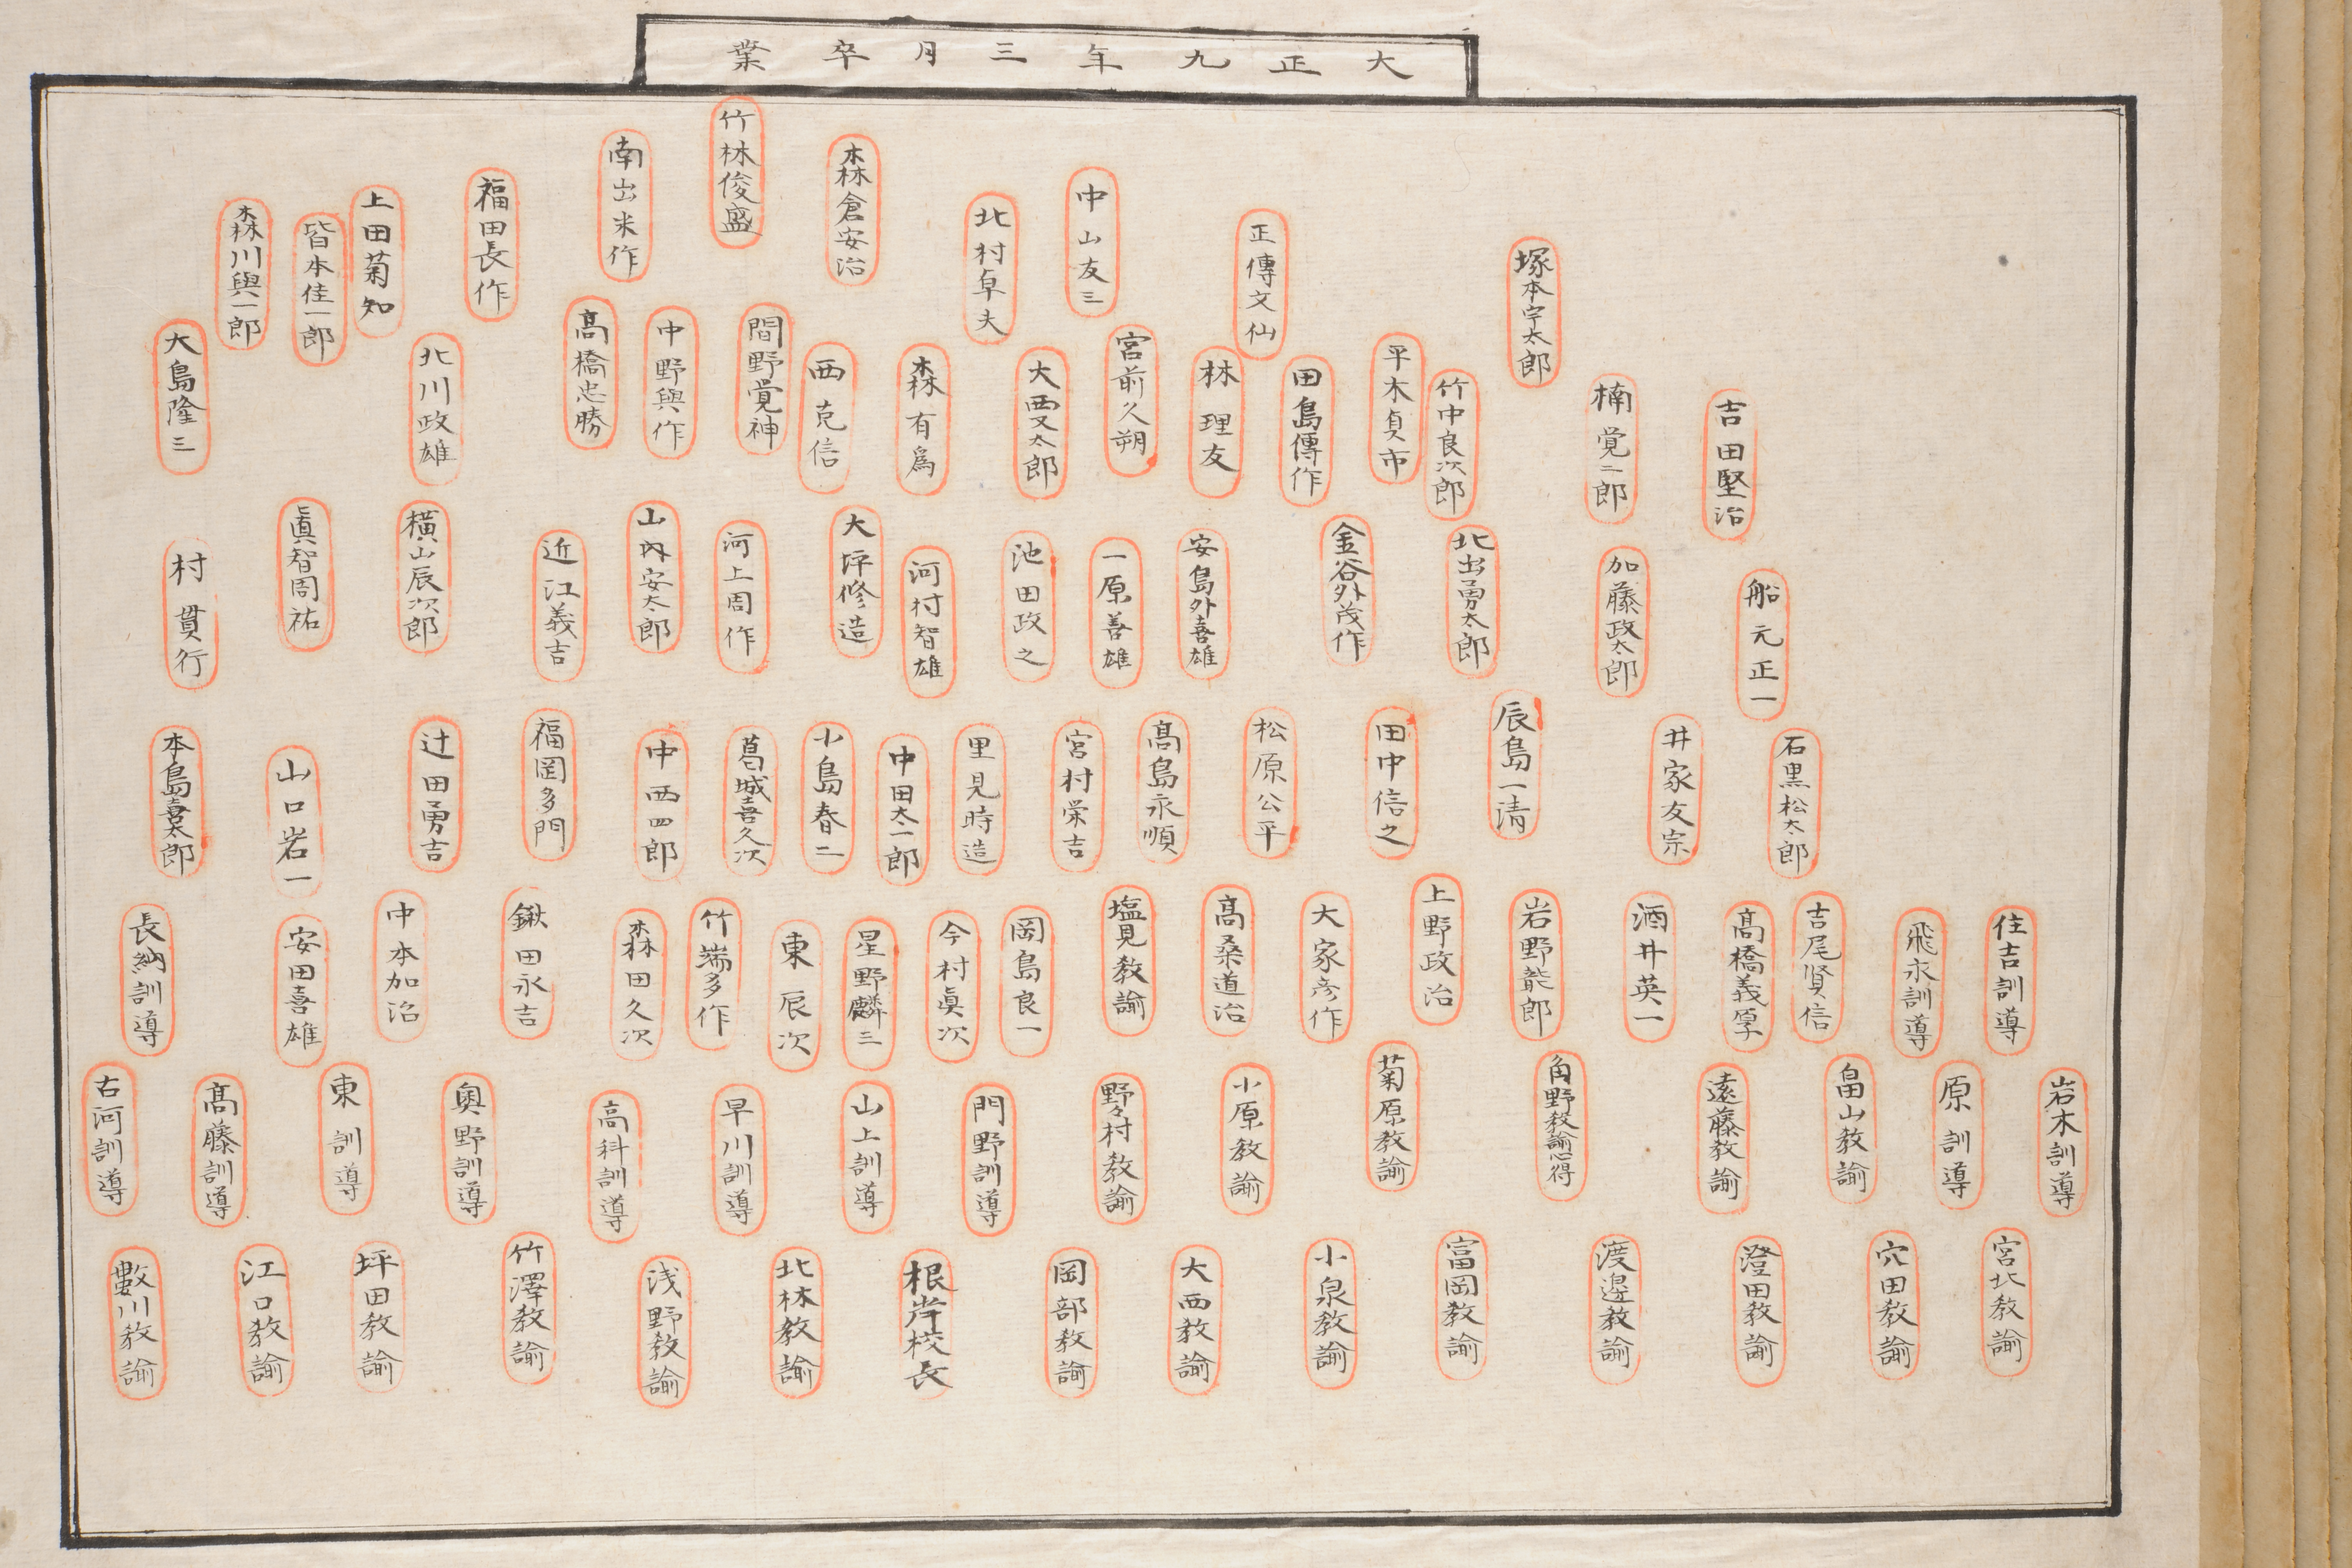 大正九年三月卒業
塚本宇太郎
正傳文仙
中山友三
北村卓夫
森倉安治
竹林俊盛
南出米作
福田長作
上田菊知
皆本佳一郎
森川與一郎
吉田堅治
楠覚二郎
竹中良次郎
平木貞市
田島傳作
林理友
宮前久朔
大西又太郎
森有爲
西克信
間野覚神
中野與作
髙橋忠勝
北川政雄
大島隆三
船元正一
加藤政太郎
北出勇太郎
金谷外茂作
安島外喜雄
一原善雄
池田政之
河村智雄
大坪修造
河上周作
山内安太郎
近江義吉
横山辰次郎
眞智周祐
村貫行
石黒松太郎
井家友宗
辰島一清
田中信之
松原公平
髙島永順
宮村栄吉
里見時造
中田太一郎
小島春二
葛城喜久次
中西四郎
福岡多門
辻田勇吉
山口岩一
本島喜太郎
住吉訓導
飛永訓導
吉尾賢信
髙橋義厚
酒井英一
岩野能郎
上野政治
大家彦作
髙桑道治
塩見教諭
岡島良一
今村眞次
星野麟三
東辰次
竹端多作
森田久次
鍬田永吉
中本加治
安田喜雄
長納訓導
岩木訓導
原訓導
畠山教諭
遠藤教諭
角野教諭心得
菊原教諭
小原教諭
野々村教諭
門野訓導
山上訓導
早川訓導
高科訓導
奥野訓導
東訓導
髙藤訓導
古河訓導
宮北教諭
穴田教諭
澄田教諭
渡邉教諭
富岡教諭
小泉教諭
大西教諭
岡部教諭
根岸校長
北林教諭
浅野教諭
竹澤教諭
坪田教諭
江口教諭
數川教諭